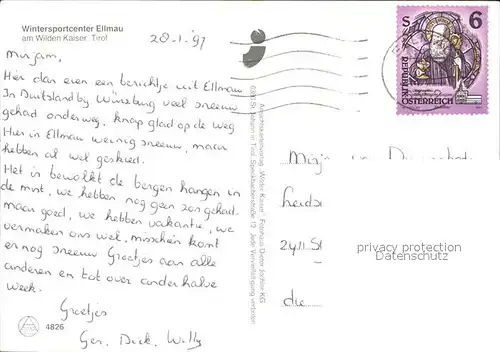 Wintersportcenter Ellmau
am Wilden Kaiser Tirol
28-1-'97
Mirjam,
Hier dan even een berichtje uit Ellmau
In Duitsland by Würzburg veel sneeuw
gehad onderweg, knap glad op de weg
Hier in Ellmau weinig sneeuw, maar
hebben al wel geskied.
Het is bewolkt de bergen hangen in
de mist, we hebben nog geen zon gehad.
maar goed, we hebben vakantie, we
vermaken ons wel, misschien komt
er nog sneeuw Groetjes aan alle
anderen en tot over anderhalve
week.
Groetjes
Ger. Dick. Willy
4826
S 6
REPUBLIK
ÖSTERREICH
privacy protection
24II St
die